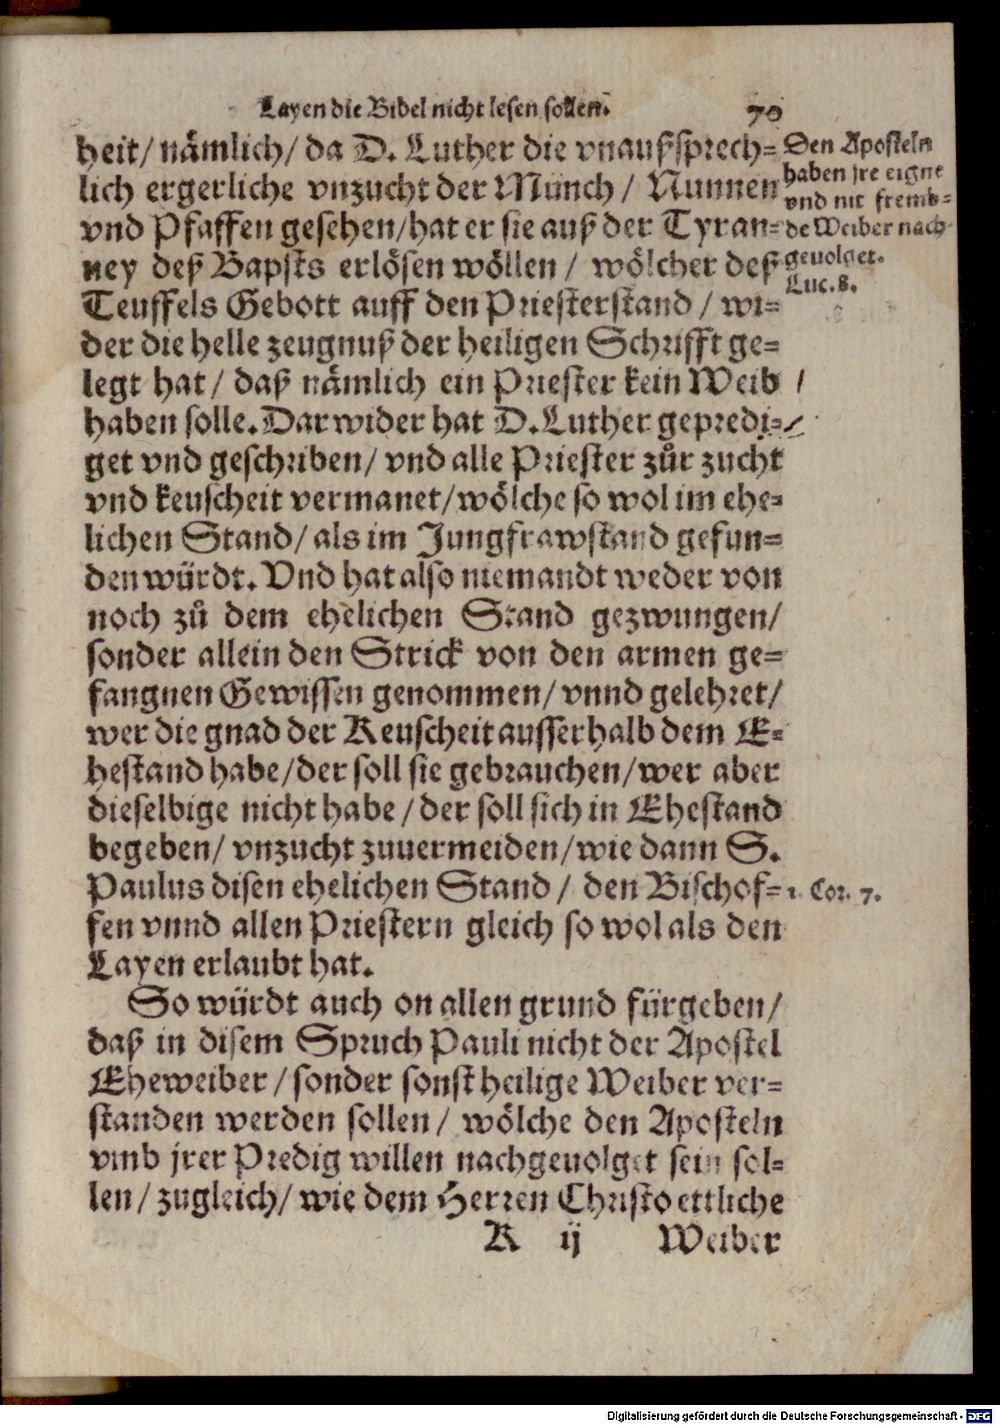 Layen die Bibel nicht lesen sollen. 70
heit/ nämlich/ da D. Luther die vnaußsprech=
lich ergerliche vnzucht der Münch/ Nunnen
vnd Pfaffen gesehen/ hat er sie auß der Tyran=
ney deß Bapsts erlösen wöllen/ wölcher deß
Teuffels Gebott auff den Priesterstand/ wi=
der die helle zeugnuß der heiligen Schrifft ge=
legt hat/ daß nämlich ein Priester kein Weib
haben solle. Darwider hat D. Luther gepredi=
get vnd geschriben/ vnd alle Priester zůr zucht
vnd keuscheit vermanet/ wölche so wol im ehe=
lichen Stand/ als im Jungfrawstand gefun=
den würdt. Vnd hat also niemandt weder von
noch zů dem ehelichen Stand gezwungen/
sonder allein den Strick von den armen ge=
fangnen Gewissen genommen/ vnnd gelehret/
wer die gnad der Keuscheit ausserhalb dem E=
hestand habe/ der soll sie gebrauchen/ wer aber
dieselbige nicht habe/ der soll sich in Ehestand
begeben/ vnzucht zuuermeiden/ wie dann S.
Paulus disen ehelichen Stand/ den Bischof=
fen vnnd allen Priestern gleich so wol als den
Layen erlaubt hat.
So würdt auch on allen grund fürgeben/
daß in disem Spruch Pauli nicht der Apostel
Eheweiber/ sonder sonst heilige Weiber ver=
standen werden sollen/ wölche den Aposteln
vmb jrer Predig willen nachgeuolget sein sol=
len/ zugleich/ wie dem Herren Christo ettliche
K ij Weiber
Den Aposteln
haben jre eigne
vnd nit fremb=
de Weiber nach
geuolget.
Luc. 8.
1. Cor. 7.
Digitalisierung gefördert durch die Deutsche Forschungsgemeinschaft - DFG